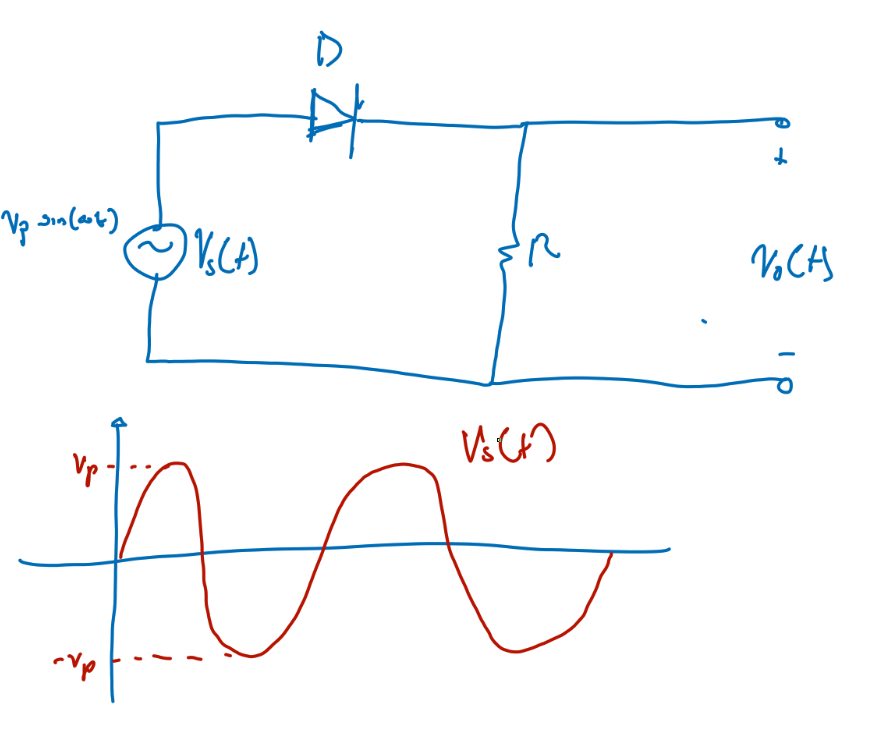 D
+
Vp sin(ωt)
Vs(t)
R
Vo(t)
−
Vs(t)
Vp
-Vp